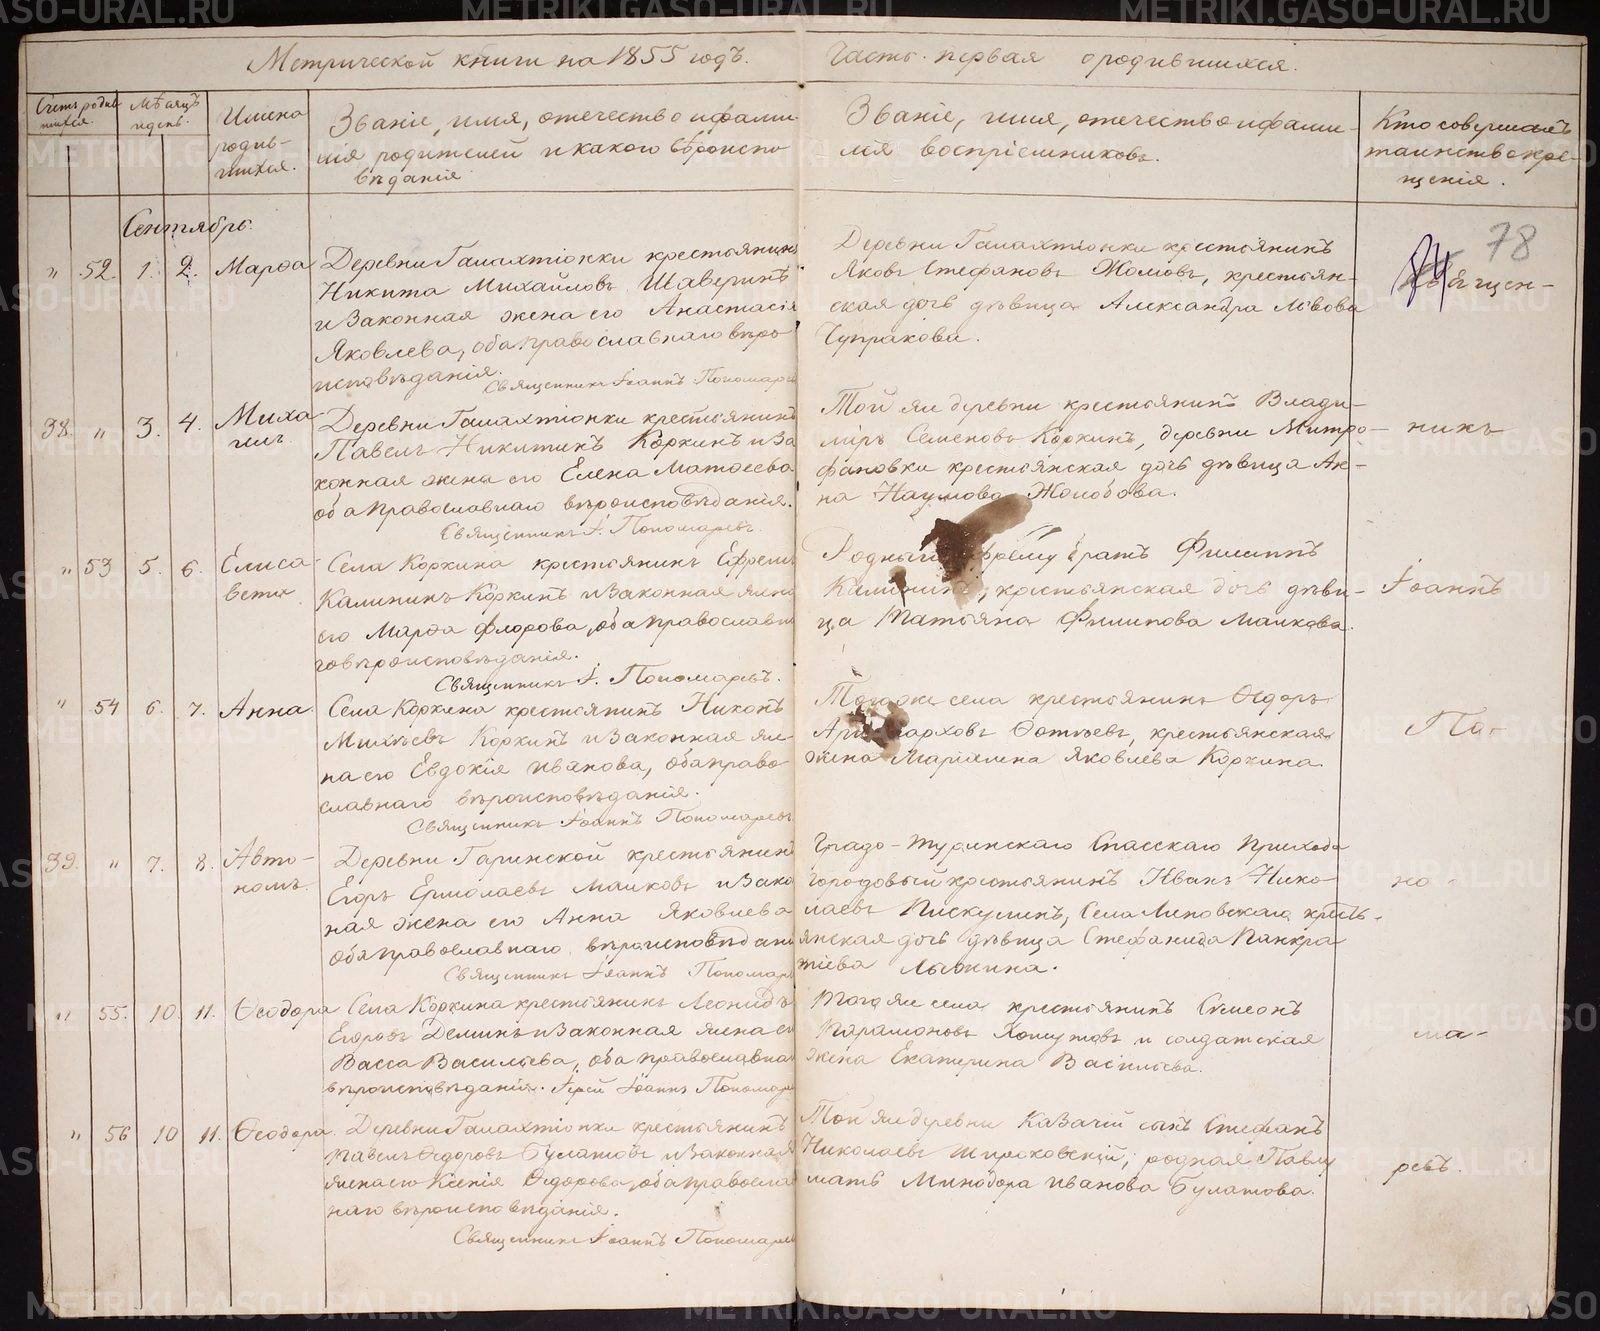 Метрической книги на 1855 годъ. Часть первая о родившихся.
Счетъ родив-
шихся.
Мѣсяцъ
и день.
Имена
родив-
шихся.
Званіе, имя, отечество и фами-
лія родителей и какого вѣроиспо-
вѣданія
Званіе, имя, отечество и фами-
лія воспріемниковъ.
Кто совершалъ
таинство кре-
щенія.
78
Сентябрь.
" 52. 1. 2. Марѳа
Деревни Галахтіонки крестьянинъ
Никита Михайловъ Шаверинъ
и законная жена его Анастасія
Яковлева, оба православнаго вѣро-
исповѣданія.
Священникъ Іоаннъ Пономаревъ
Деревни Галахтіонки крестьянинъ
Яковъ Стефановъ Жоловъ, крестьян-
ская дочь дѣвица Александра Львова
Чупракова.
Священ-
38. " 3. 4. Миха-
илъ.
Деревни Галахтіонки крестьянинъ
Павелъ Никитинъ Коркинъ и за-
конная жена его Елена Матѳеева
оба православнаго вѣроисповѣданія.
Священникъ І. Пономаревъ.
Той же деревни крестьянинъ Влади-
міръ Семеновъ Коркинъ, деревни Митро-
фановки крестьянская дочь дѣвица Ан-
на Наумова Жолобова.
никъ
" 53 5. 6. Елиса-
вета.
Села Коркина крестьянинъ Ефремъ
Калининъ Коркинъ и законная жена
его Марѳа Флорова, оба православна-
го вѣроисповѣданія.
Священникъ І. Пономаревъ.
Родный Ефрему братъ Филиппъ
Калининъ, крестьянская дочь дѣви-
ца Татьяна Филипова Малкова.
Іоаннъ
" 54 6. 7. Анна.
Села Коркина крестьянинъ Никонъ
Михѣевъ Коркинъ и законная же-
на его Евдокія Иванова, оба право-
славнаго вѣроисповѣданія.
Священникъ Іоаннъ Пономаревъ
Того же села крестьянинъ Ѳедоръ
Аристарховъ Ѳотѣевъ, крестьянская
жена Маріамна Яковлева Коркина.
По-
39. " 7. 8. Авто-
номъ.
Деревни Гаринской крестьянинъ
Егоръ Ермолаевъ Малковъ и зако
ная жена его Анна Яковлева
оба православнаго вѣроисповѣдані
Священникъ Іоаннъ Пономарев
Градо-Туринскаго Спасскаго прихода
городовый крестьянинъ Иванъ Нико-
лаевъ Пискулинъ, Села Липовскаго кресть-
янская дочь дѣвица Стефанида Панкра-
тіева Лыжина.
но-
" 55. 10. 11. Ѳеодора
Села Коркина крестьянинъ Леонидъ
Егоровъ Деминъ и законная жена ег
Васса Васильева, оба православна
вѣроисповѣданія. Іерей Іоаннъ Пономаре
Того же села крестьянинъ Симеонъ
Парамоновъ Хомутовъ и солдатская
жена Екатерина Васильева.
ма-
" 56 10 11. Ѳеодора.
Деревни Галахтіонки крестьянинъ
Павелъ Ѳедоровъ Булатовъ и законная
жена его Ксенія Ѳедорова, оба правосла
наго вѣроисповѣданія.
Священникъ Іоаннъ Пономарев
Той же деревни казачій сынъ Стефанъ
Николаевъ Шираковскій, родная Павлу
мать Минодора Иванова Булатова.
ревъ.
METRIKI.GASO-URAL.RU